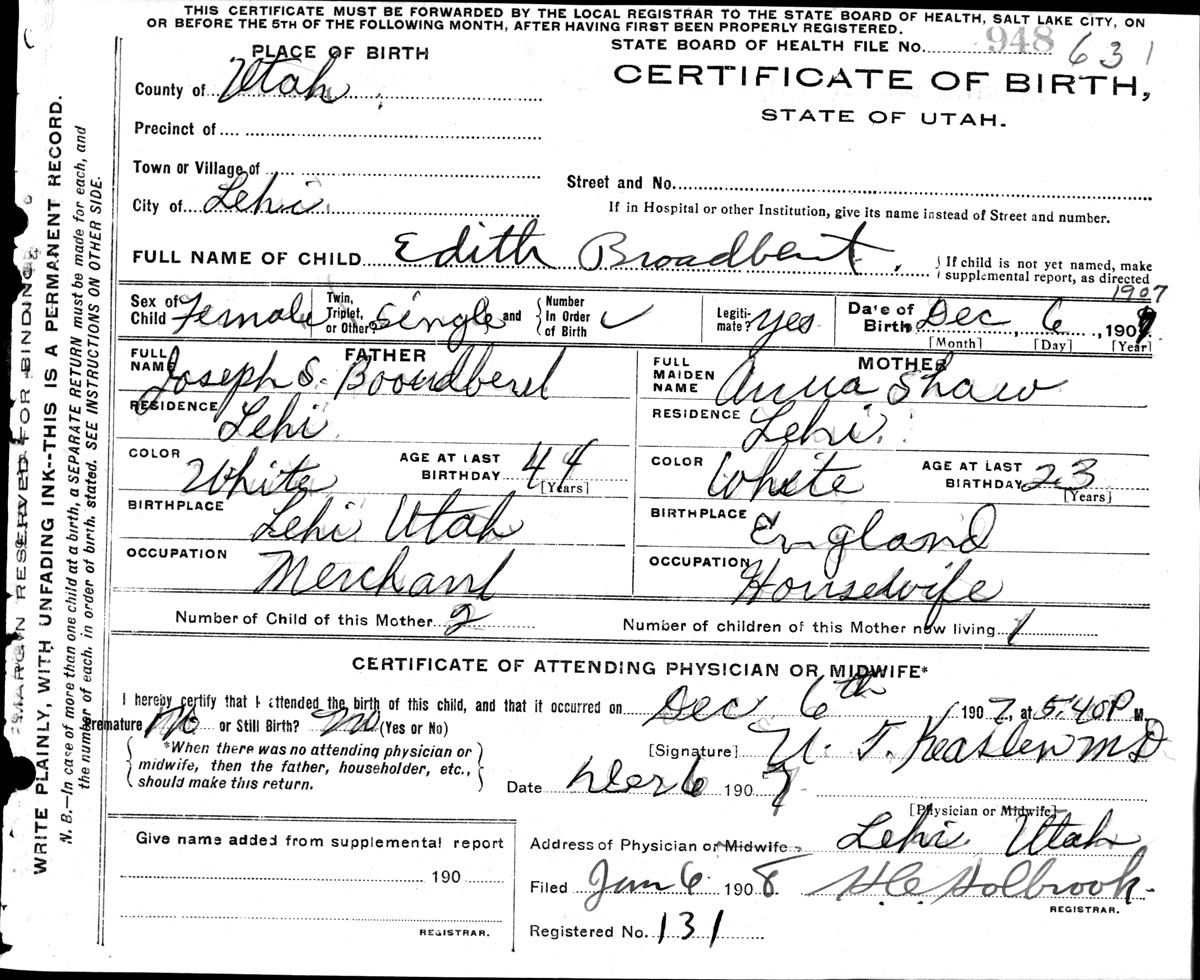 THIS CERTIFICATE MUST BE FORWARDED BY THE LOCAL REGISTRAR TO THE STATE BOARD OF HEALTH, SALT LAKE CITY, ON
OR BEFORE THE 5TH OF THE FOLLOWING MONTH, AFTER HAVING FIRST BEEN PROPERLY REGISTERED.
PLACE OF BIRTH
STATE BOARD OF HEALTH FILE No. 948 631
County of Utah
CERTIFICATE OF BIRTH,
STATE OF UTAH.
Precinct of
Town or Village of
Street and No.
City of Lehi
If in Hospital or other Institution, give its name instead of Street and number.
FULL NAME OF CHILD Edith Broadbent.
If child is not yet named, make
supplemental report, as directed
1907
Sex of Child Female
Twin, Triplet, or Other? single and
Number In Order of Birth
Legiti-mate? yes
Date of Birth Dec 6, 1907
[Month] [Day] [Year]
FATHER
FULL NAME Joseph S. Boondberd
RESIDENCE Lehi
COLOR White
AGE AT LAST BIRTHDAY 44
[Years]
BIRTHPLACE Lehi Utah
OCCUPATION Merchant
MOTHER
FULL MAIDEN NAME Anna Shaw
RESIDENCE Lehi.
COLOR White
AGE AT LAST BIRTHDAY 23
[Years]
BIRTHPLACE England
OCCUPATION Housewife
Number of Child of this Mother 2
Number of children of this Mother now living 1
CERTIFICATE OF ATTENDING PHYSICIAN OR MIDWIFE*
I hereby certify that I attended the birth of this child, and that it occurred on Dec 6th, 1907, at 5:40 P M.
Premature No or Still Birth? No (Yes or No)
*When there was no attending physician or
midwife, then the father, householder, etc.,
should make this return.
[Signature] T. M D
Date Dec 6 1907
[Physician or Midwife]
Give name added from supplemental report
190
REGISTRAR.
Address of Physician or Midwife Lehi Utah
Filed Jan 6 1908 H.C. Holbrook.
REGISTRAR.
Registered No. 131
MARGIN RESERVED FOR BINDING
WRITE PLAINLY, WITH UNFADING INK--THIS IS A PERMANENT RECORD.
N. B.--In case of more than one child at a birth, a SEPARATE RETURN must be made for each, and
the number of each, in order of birth, stated. SEE INSTRUCTIONS ON OTHER SIDE.